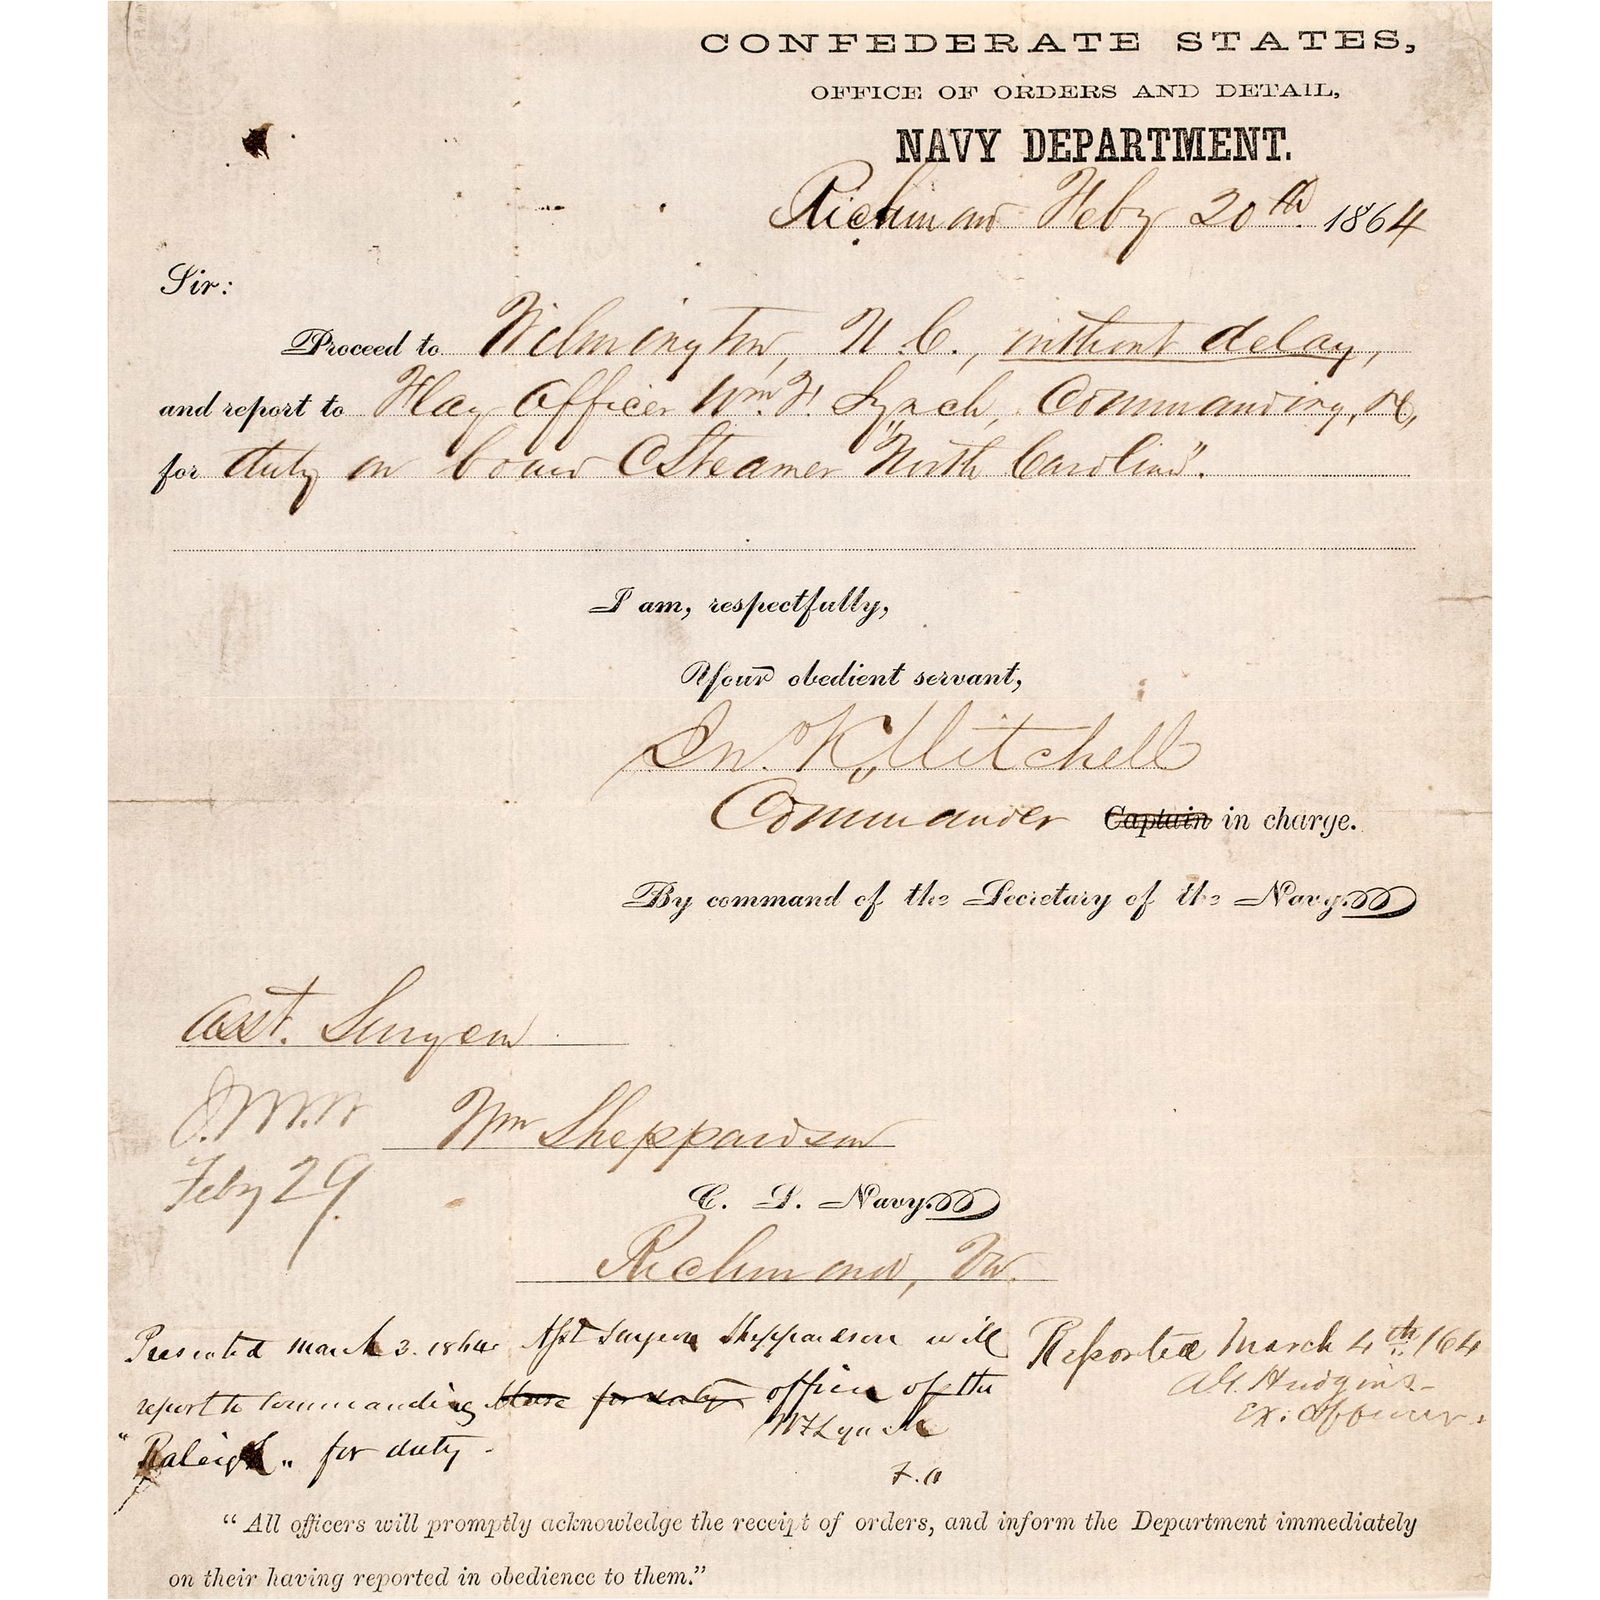 CONFEDERATE STATES,
OFFICE OF ORDERS AND DETAIL,
NAVY DEPARTMENT.
Richmond Feby 20th. 1864
Sir:
Proceed to Wilmington, N. C., without delay,
and report to Flag Officer Wm. F. Lynch, Commanding, &c,
for duty on board CSteamer "North Carolina".
I am, respectfully,
Your obedient servant,
Jno. K. Mitchell
Commander Captain in charge.
By command of the Secretary of the Navy.
Asst. Surgeon
J.W.W.
Wm Sheppardson
Feby 29.
C. S. Navy.
Richmond, Va.
Presented March 3. 1864. Asst Surgeon Sheppardson will
report to Commanding for duty officer of the
"Raleigh" for duty.
WFLynch
F. O
Reported March 4th /64
A. Hudgins
Ex: Officer.
"All officers will promptly acknowledge the receipt of orders, and inform the Department immediately
on their having reported in obedience to them."